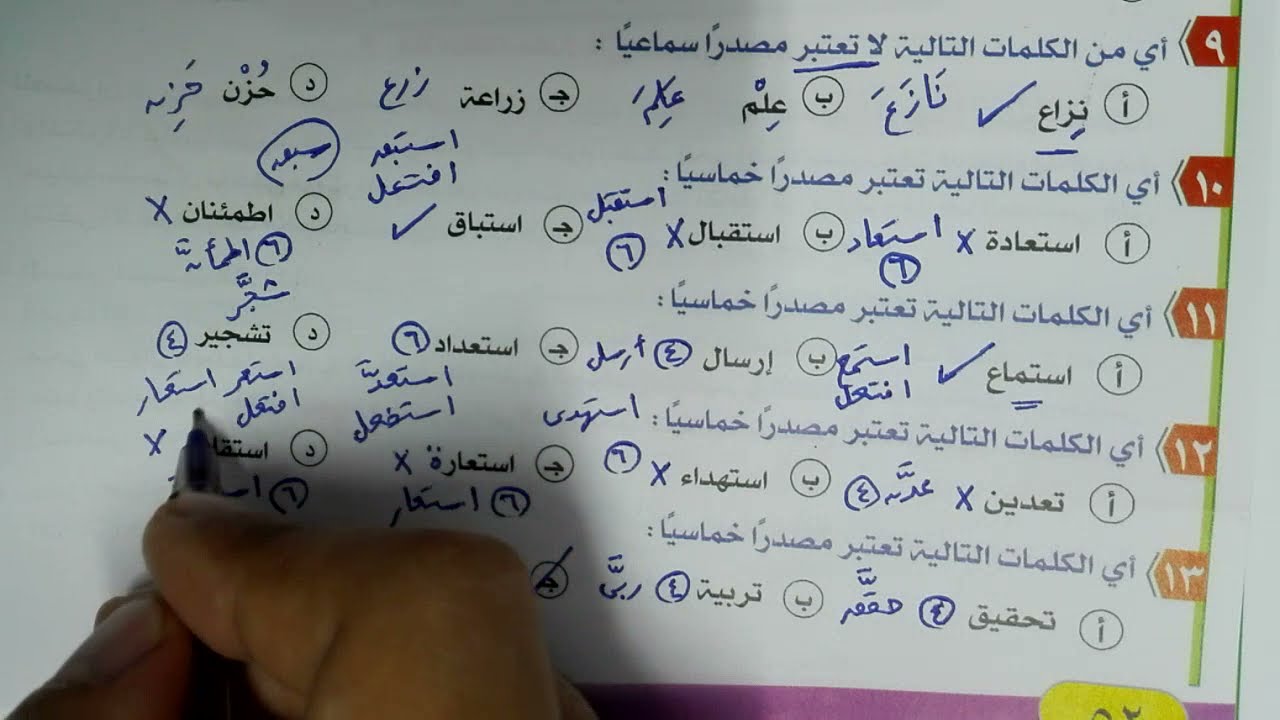 ٩ أي من الكلمات التالية لا تعتبر مصدرًا سماعيًا :
أ نِزاع ✓ نَازَعَ ب عِلْم عَلِمَ جـ زراعة زرع د حُزْن حَزِن
استبق سبق
افتعل
١٠ أي الكلمات التالية تعتبر مصدرًا خماسيًا :
استقبل
أ استعادة X استعاد ٦ ب استقبال X ٦ جـ استباق ✓ د اطمئنان X
٦ اطمأنَّ
شجَّر
١١ أي الكلمات التالية تعتبر مصدرًا خماسيًا :
أ استماع ✓ استمع ب إرسال ٤ أرسل جـ استعداد ٦ د تشجير ٤
افتعل استعدَّ استعر استعار
استفعل افتعل
١٢ أي الكلمات التالية تعتبر مصدرًا خماسيًا : استهدى
أ تعدين X عدَّن ٤ ب استهداء X ٦ جـ استعارة X د X
٦ استعار ٦
١٣ أي الكلمات التالية تعتبر مصدرًا خماسيًا :
أ تحقيق ٤ حقَّق ب تربية ٤ ربَّى جـ
٥٢